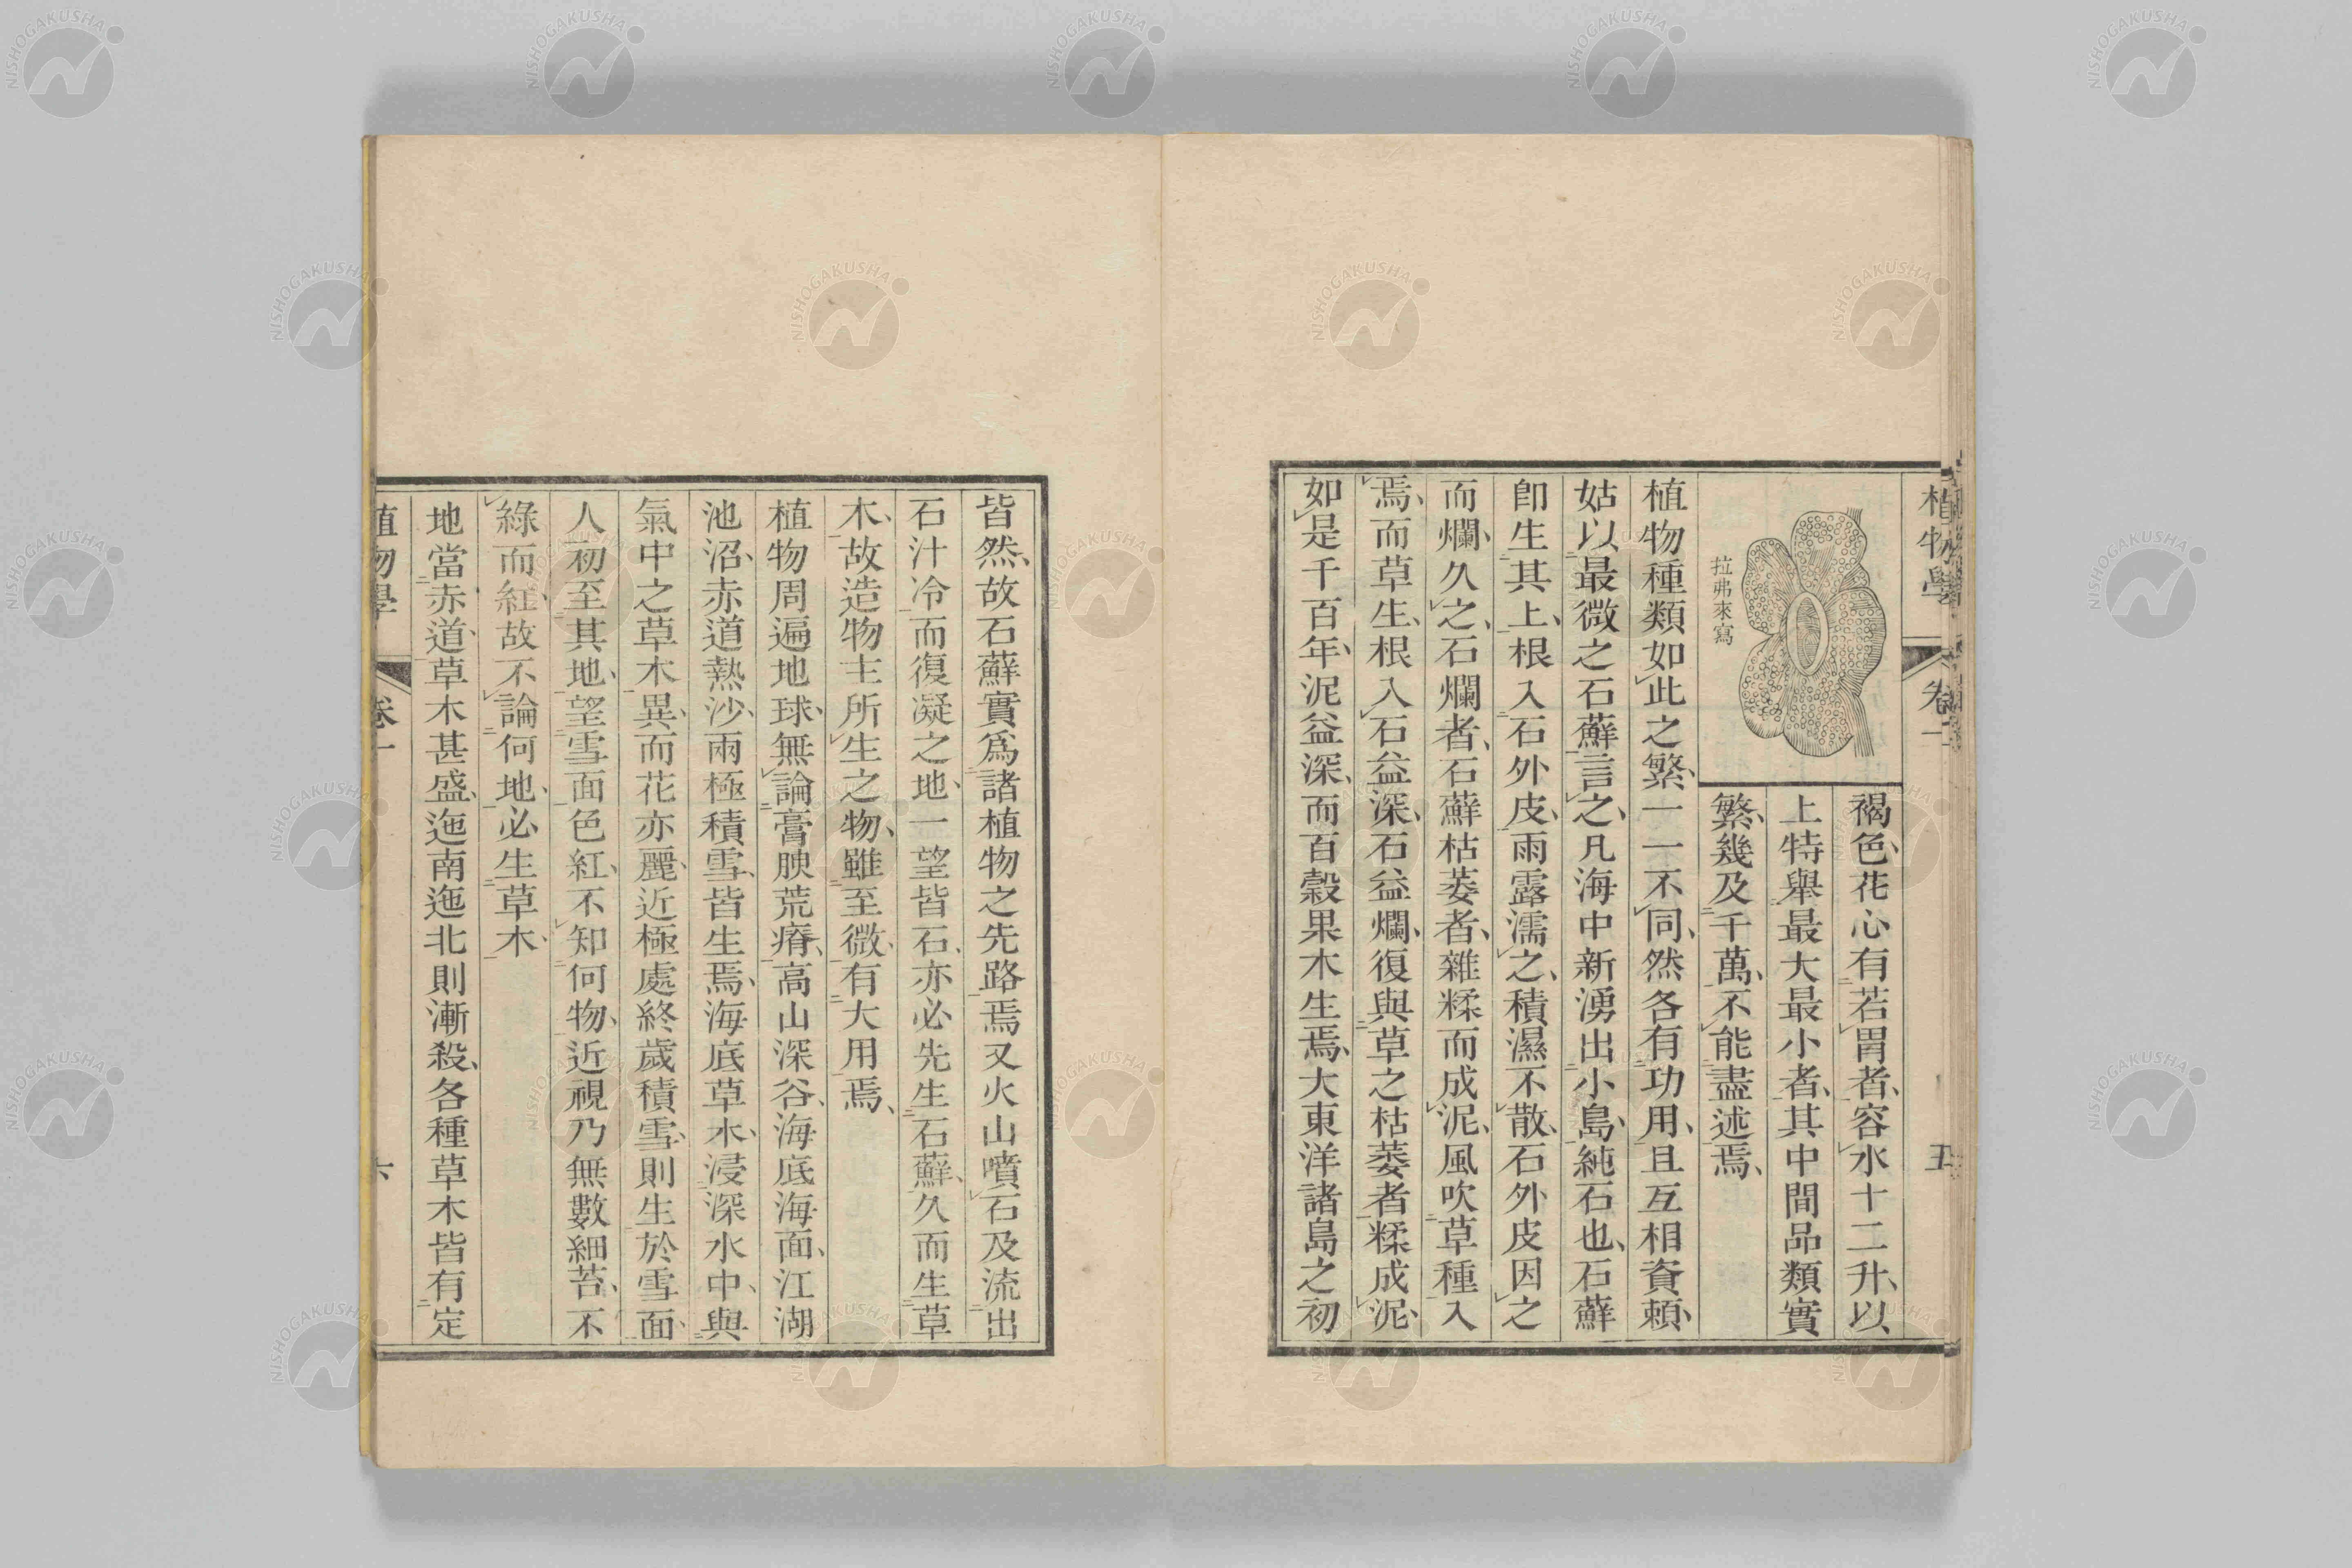 植物學 卷一 五
拉弗來寫
褐色、花心有若胃者、容水十二升、以
上特舉最大最小者、其中間品類實
繁、幾及千萬、不能盡述焉、
植物種類如此之繁、一一不同、然各有功用、且互相資賴、
姑以最微之石蘚言之、凡海中新湧出小島、純石也、石蘚
卽生其上、根入石外皮、雨露濡之、積濕不散、石外皮因之
而爛、久之、石爛者、石蘚枯萎者、雜糅而成泥、風吹草種入
焉、而草生、根入石益深、石益爛、復與草之枯萎者糅成泥、
如是千百年、泥益深、而百穀果木生焉、大東洋諸島之初
皆然、故石蘚實爲諸植物之先路焉又火山噴石及流出
石汁冷而復凝之地、一望皆石、亦必先生石蘚、久而生草
木、故造物主所生之物、雖至微、有大用焉、
植物周遍地球、無論膏腴荒瘠、高山深谷、海底海面、江湖
池沼、赤道熱沙、兩極積雪、皆生焉、海底草木、浸深水中、與
氣中之草木異、而花亦麗、近極處終歲積雪、則生於雪面、
人初至其地、望雪面色紅、不知何物、近視乃無數細苔、不
綠而紅、故不論何地、必生草木、
地當赤道、草木甚盛、迤南迤北則漸殺、各種草木皆有定
植物學 卷一 六
NISHOGAKUSHA